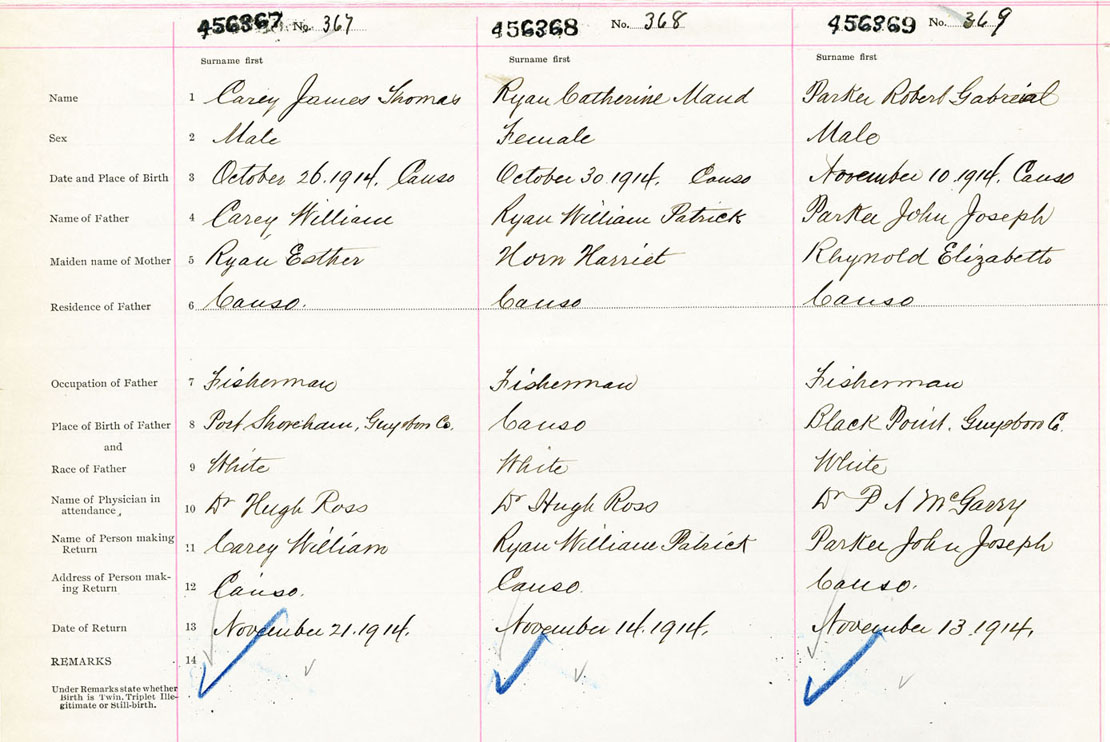 456367 No. 367 456368 No. 368 456369 No. 369
Surname first Surname first Surname first
Name 1 Carey James Thomas Ryan Catherine Maud Parker Robert Gabrieal
Sex 2 Male Female Male
Date and Place of Birth 3 October 26.1914. Canso October 30.1914. Canso November 10.1914. Canso
Name of Father 4 Carey William Ryan William Patrick Parker John Joseph
Maiden name of Mother 5 Ryan Esther Horn Harriet Rhynold Elizabeth
Residence of Father 6 Canso. Canso Canso
Occupation of Father 7 Fisherman Fisherman Fisherman
Place of Birth of Father 8 Port Shoreham, Guysboro Co. Canso Black Point. Guysboro Co.
and
Race of Father 9 White White White
Name of Physician in attendance, 10 Dr Hugh Ross Dr Hugh Ross Dr P A McGarry
Name of Person making Return 11 Carey William Ryan William Patrick Parker John Joseph
Address of Person mak-
ing Return 12 Canso. Canso. Canso.
Date of Return 13 November 21.1914. November 14.1914. November 13.1914.
REMARKS 14
Under Remarks state whether
Birth is Twin, Triplet Ille-
gitimate or Still-birth.